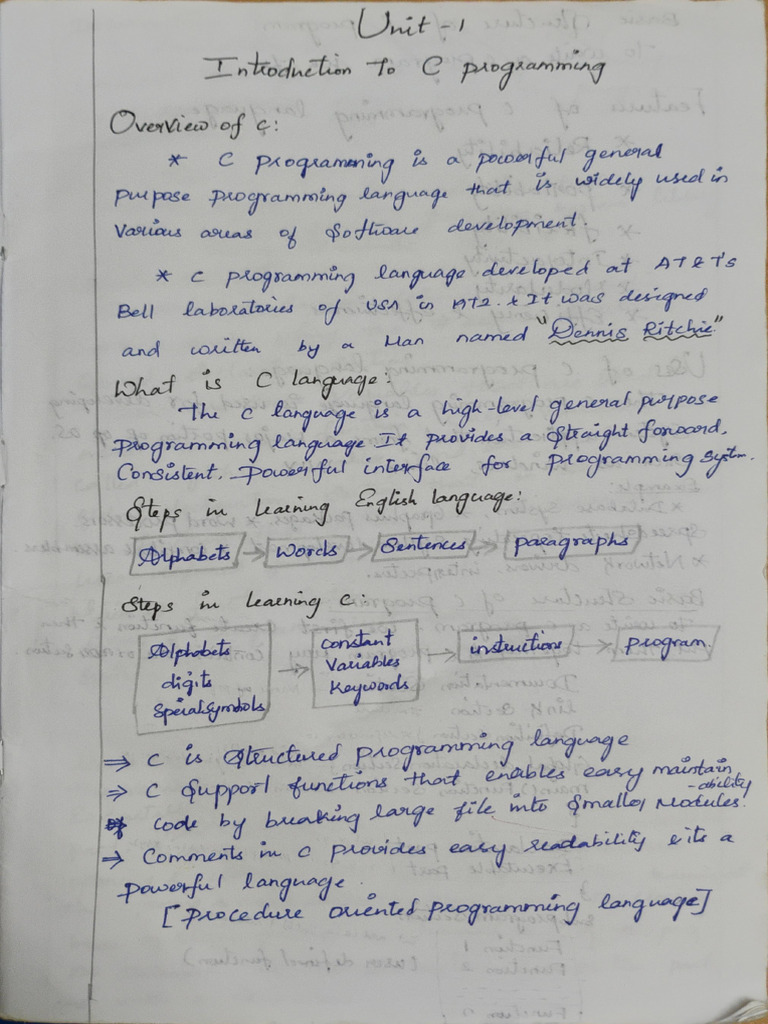 Unit - 1
Introduction To C programming
Overview of C:
* C programming is a powerful general
purpose programming language that is widely used in
various areas of software development.
* C programming language developed at AT & T's
Bell laboratories of USA in 1972. & It was designed
and written by a Man named "Dennis Ritchie"
What is C language:
The C language is a high-level general purpose
programming language It provides a straight forward,
Consistent, powerful interface for programming system.
Steps in learning English language:
Alphabets → Words → Sentences → paragraphs
Steps in learning C:
Alphabets digits SpecialSymbols → constant Variables Keywords → instructions → program
⇒ C is Structured programming language
⇒ C Support functions that enables easy maintain-ability
code by breaking large file into smaller Modules.
⇒ Comments in C provides easy readability & its a
powerful language.
[procedure oriented programming language]